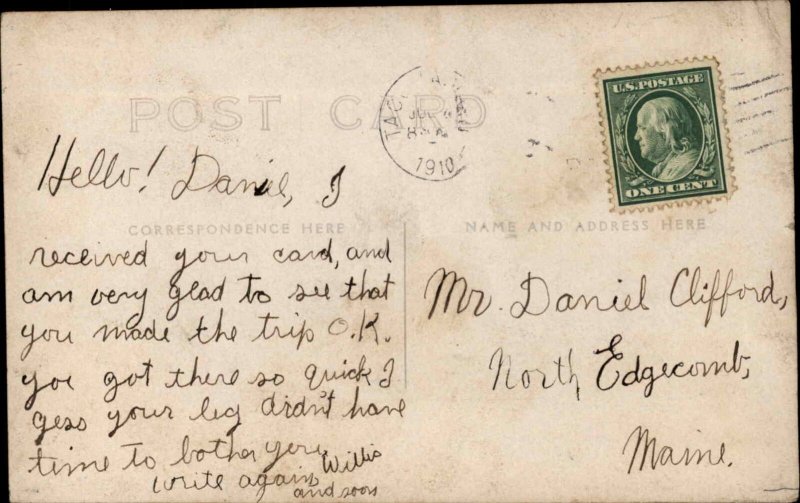 POST CARD
1910
U.S. POSTAGE
ONE CENT
CORRESPONDENCE HERE
NAME AND ADDRESS HERE
Hello! Daniel, I
received your card, and
am very glad to see that
you made the trip O.K.
you got there so quick I
gess your leg didn't have
time to bother you.
write again
and soon
Willis
Mr. Daniel Clifford,
North Edgecomb,
Maine.